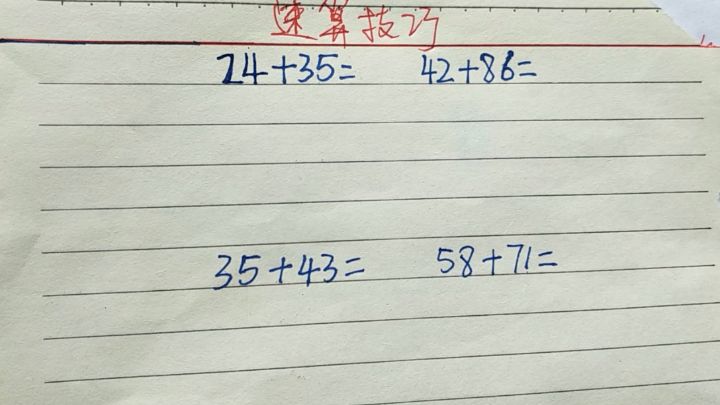 速算技巧
24+35= 42+86=
35+43= 58+71=